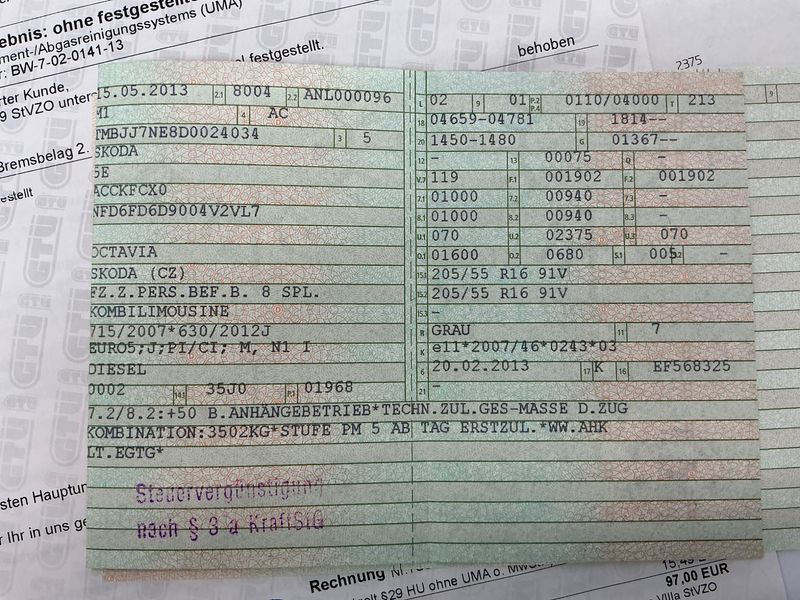 ebnis: ohne festgeste
ment-/Abgasreinigungssystems (UMA)
r: BW-7-02-0141-13
el festgestellt.
behoben
rter Kunde,
9 StVZO unter
Bremsbelag 2.
estellt
2375
15.05.2013 2.1 8004 2.2 ANL000096
MI 4 AC
TMBJJ7NE8D0024034 3 5
SKODA
5E
ACCKFCX0
NFD6FD6D9004V2VL7
OCTAVIA
SKODA (CZ)
FZ.Z.PERS.BEF.B. 8 SPL.
KOMBILIMOUSINE
715/2007*630/2012J
EURO5;J;PI/CI; M, N1 I
DIESEL
0002 14.1 35J0 P.1 01968
L 02 9 01 P.2 P.4 0110/04000 T 213
18 04659-04781 19 1814--
20 1450-1480 G 01367--
12 - 13 00075 Q -
V.7 119 F.1 001902 F.2 001902
7.1 01000 7.2 00940 7.3 -
8.1 01000 8.2 00940 8.3 -
U.1 070 U.2 02375 U.3 070
O.1 01600 O.2 0680 S.1 005 S.2 -
15.1 205/55 R16 91V
15.2 205/55 R16 91V
15.3 -
R GRAU 11 7
K e11*2007/46*0243*03
6 20.02.2013 17 K 16 EF568325
21 -
7.2/8.2:+50 B.ANHÄNGEBETRIEB*TECHN.ZUL.GES-MASSE D.ZUG
KOMBINATION:3502KG*STUFE PM 5 AB TAG ERSTZUL.*WW.AHK
LT.EGTG*
Steuervergünstigung
nach § 3 a KraftStG
9
sten Hauptun
r Ihr in uns ge
Rechnung Nr.
elt §29 HU ohne UMA o. MwSt
15,49 EUR
97,00 EUR
Villa StVZO
GTÜ